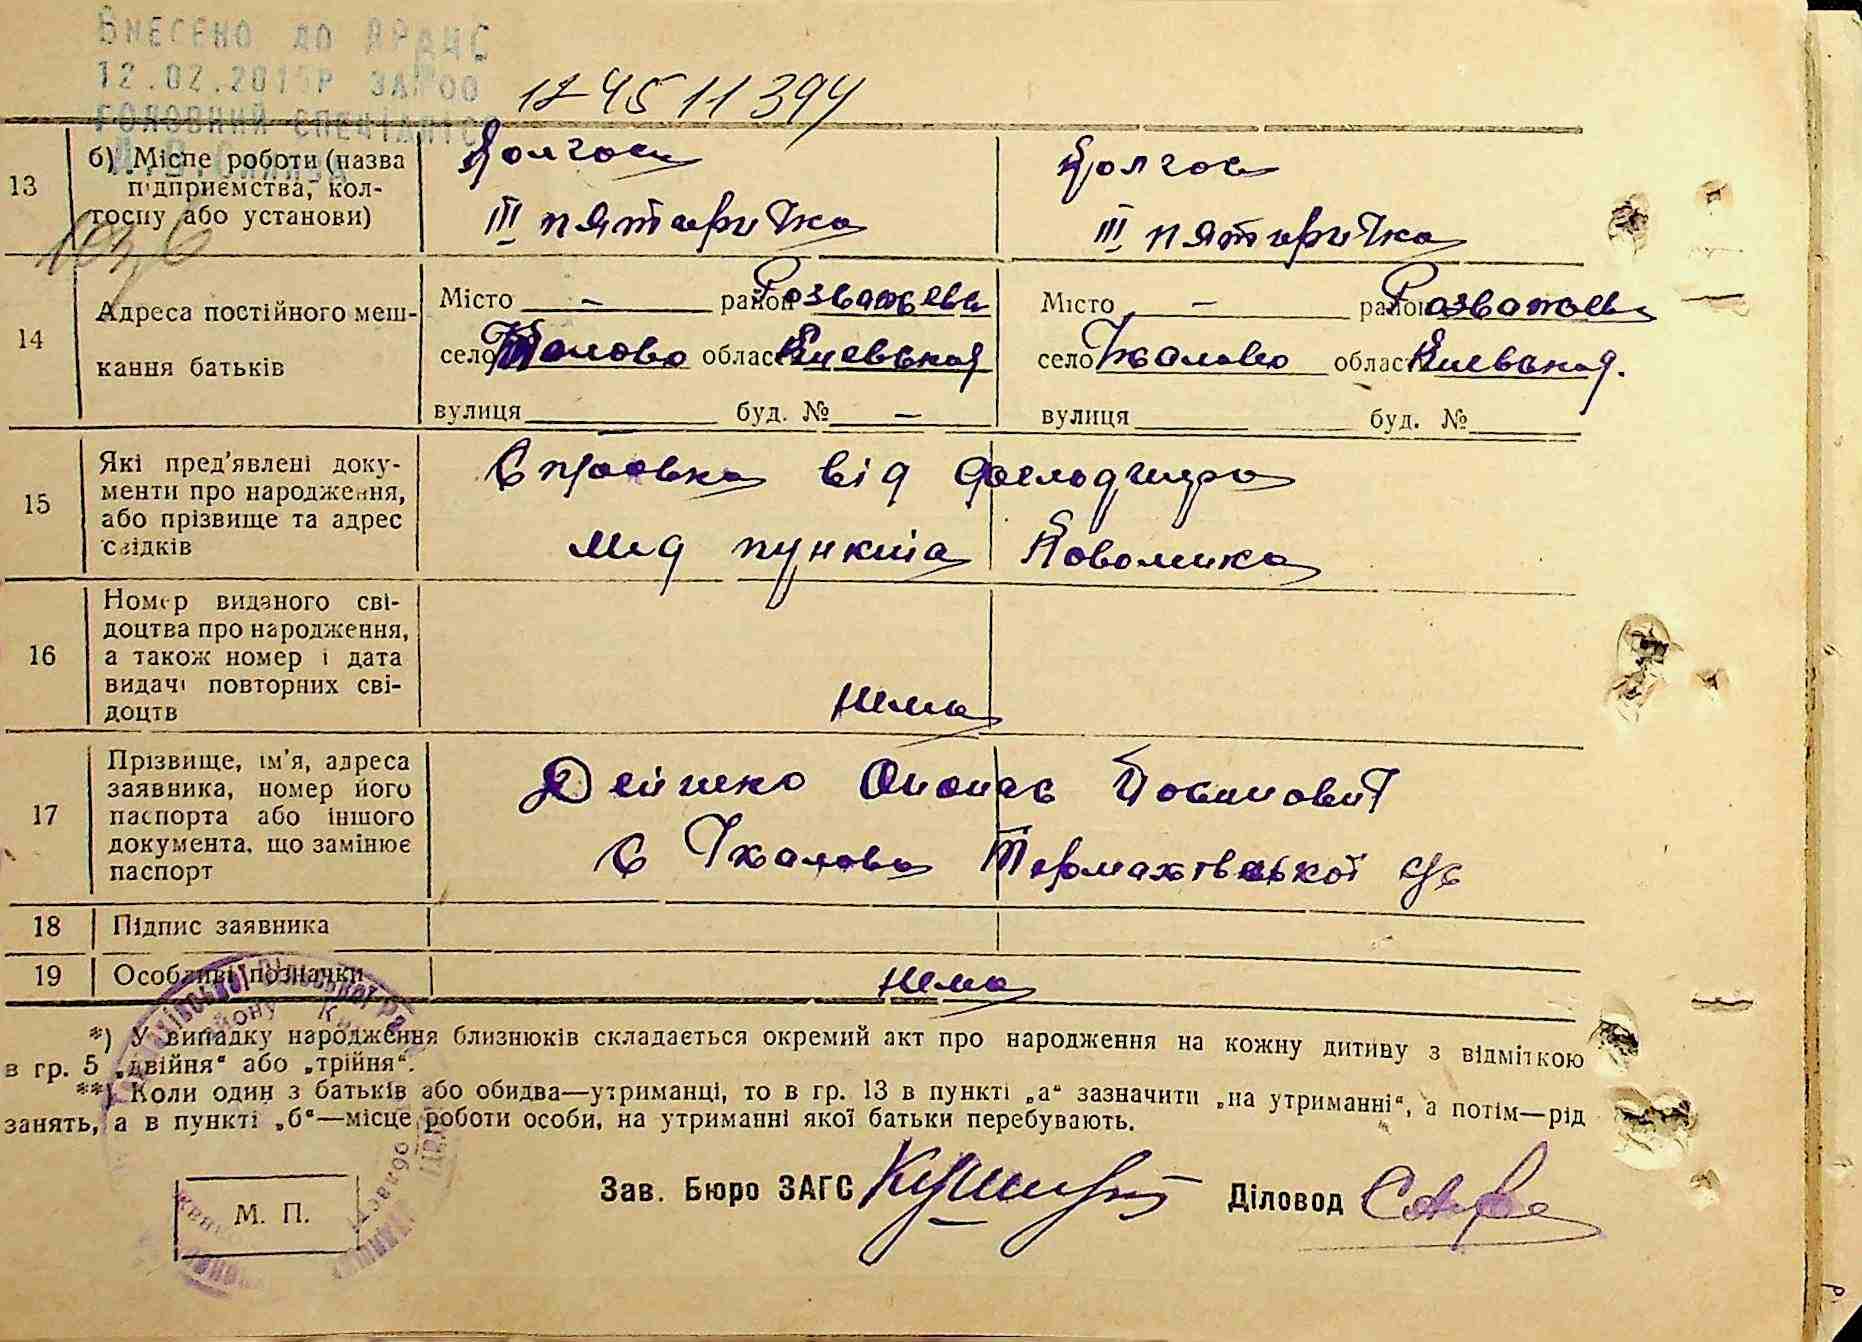 ВНЕСЕНО ДО ДРАЦС
12.02.201 Р ЗА
ГОЛОВНИЙ СПЕЦІАЛІСТ
1745 11 394
13
б) Місце роботи (назва підприємства, кол-
госпу або установи)
Колгосп
III пятирічка
Колгосп
III пятирічка
14
Адреса постійного меш-
кання батьків
Місто — район Розважевс
село Чкалово область Киевская
вулиця буд. № —
Місто — район Розважевс
село Чкалово область Киевская.
вулиця буд. №
15
Які пред'явлені доку-
менти про народження,
або прізвище та адрес
свідків
Справка від фельдшера
мед пункта
16
Номер виданого сві-
доцтва про народження,
а також номер і дата
видачі повторних сві-
доцтв
нема
17
Прізвище, ім'я, адреса
заявника, номер його
паспорта або іншого
документа, що замінює
паспорт
Дейнеко Опонас
с Чкалово Термахівської с/с
18
Підпис заявника
19
Особливі позначки
нема
*) У випадку народження близнюків складається окремий акт про народження на кожну дитину з відміткою
в гр. 5 „двійня“ або „трійня“.
**) Коли один з батьків або обидва—утриманці, то в гр. 13 в пункті „а“ зазначити „на утриманні“, а потім—рід
занять, а в пункті „б“—місце роботи особи, на утриманні якої батьки перебувають.
М. П.
Зав. Бюро ЗАГС
Діловод